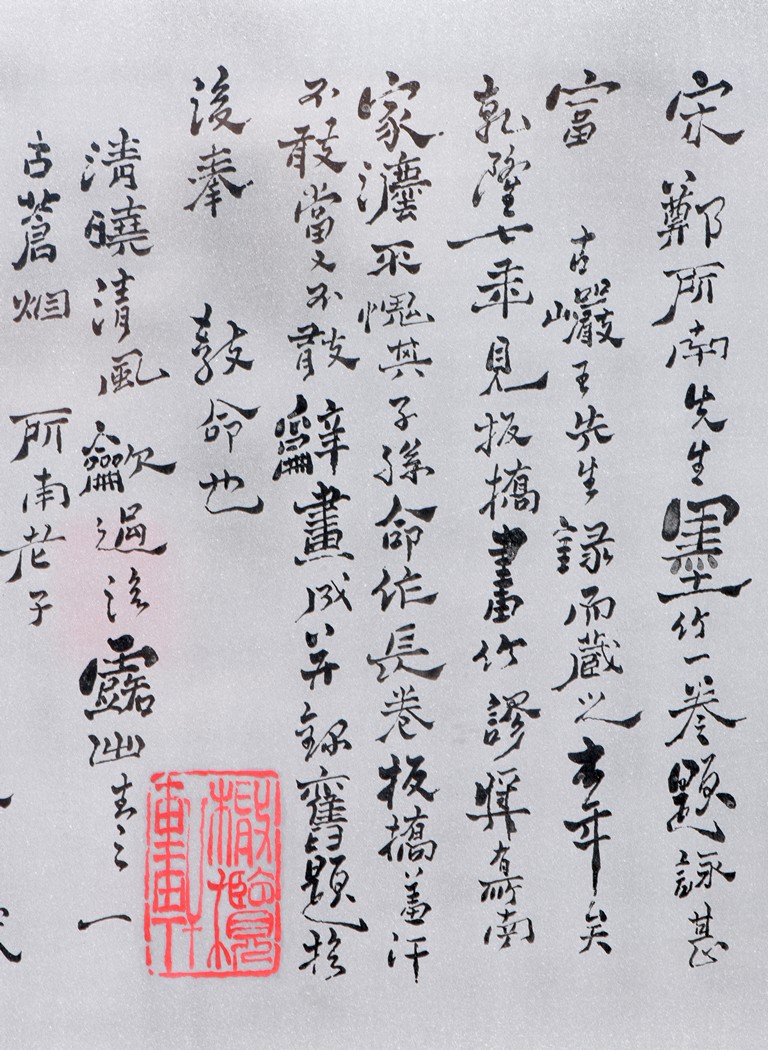 宋鄭所南先生墨竹一卷題詠甚
富 古巖王先生録而藏之有年矣
乾隆七年見板橋畫竹謬獎為所南
家灋不愧其子孫命作長卷板橋羞汗
不敢當又不敢辭畫成并録舊題於
後奉 教命也
清曉清風飲過 露幽 一
古蒼烟 所南老子
橄欖軒